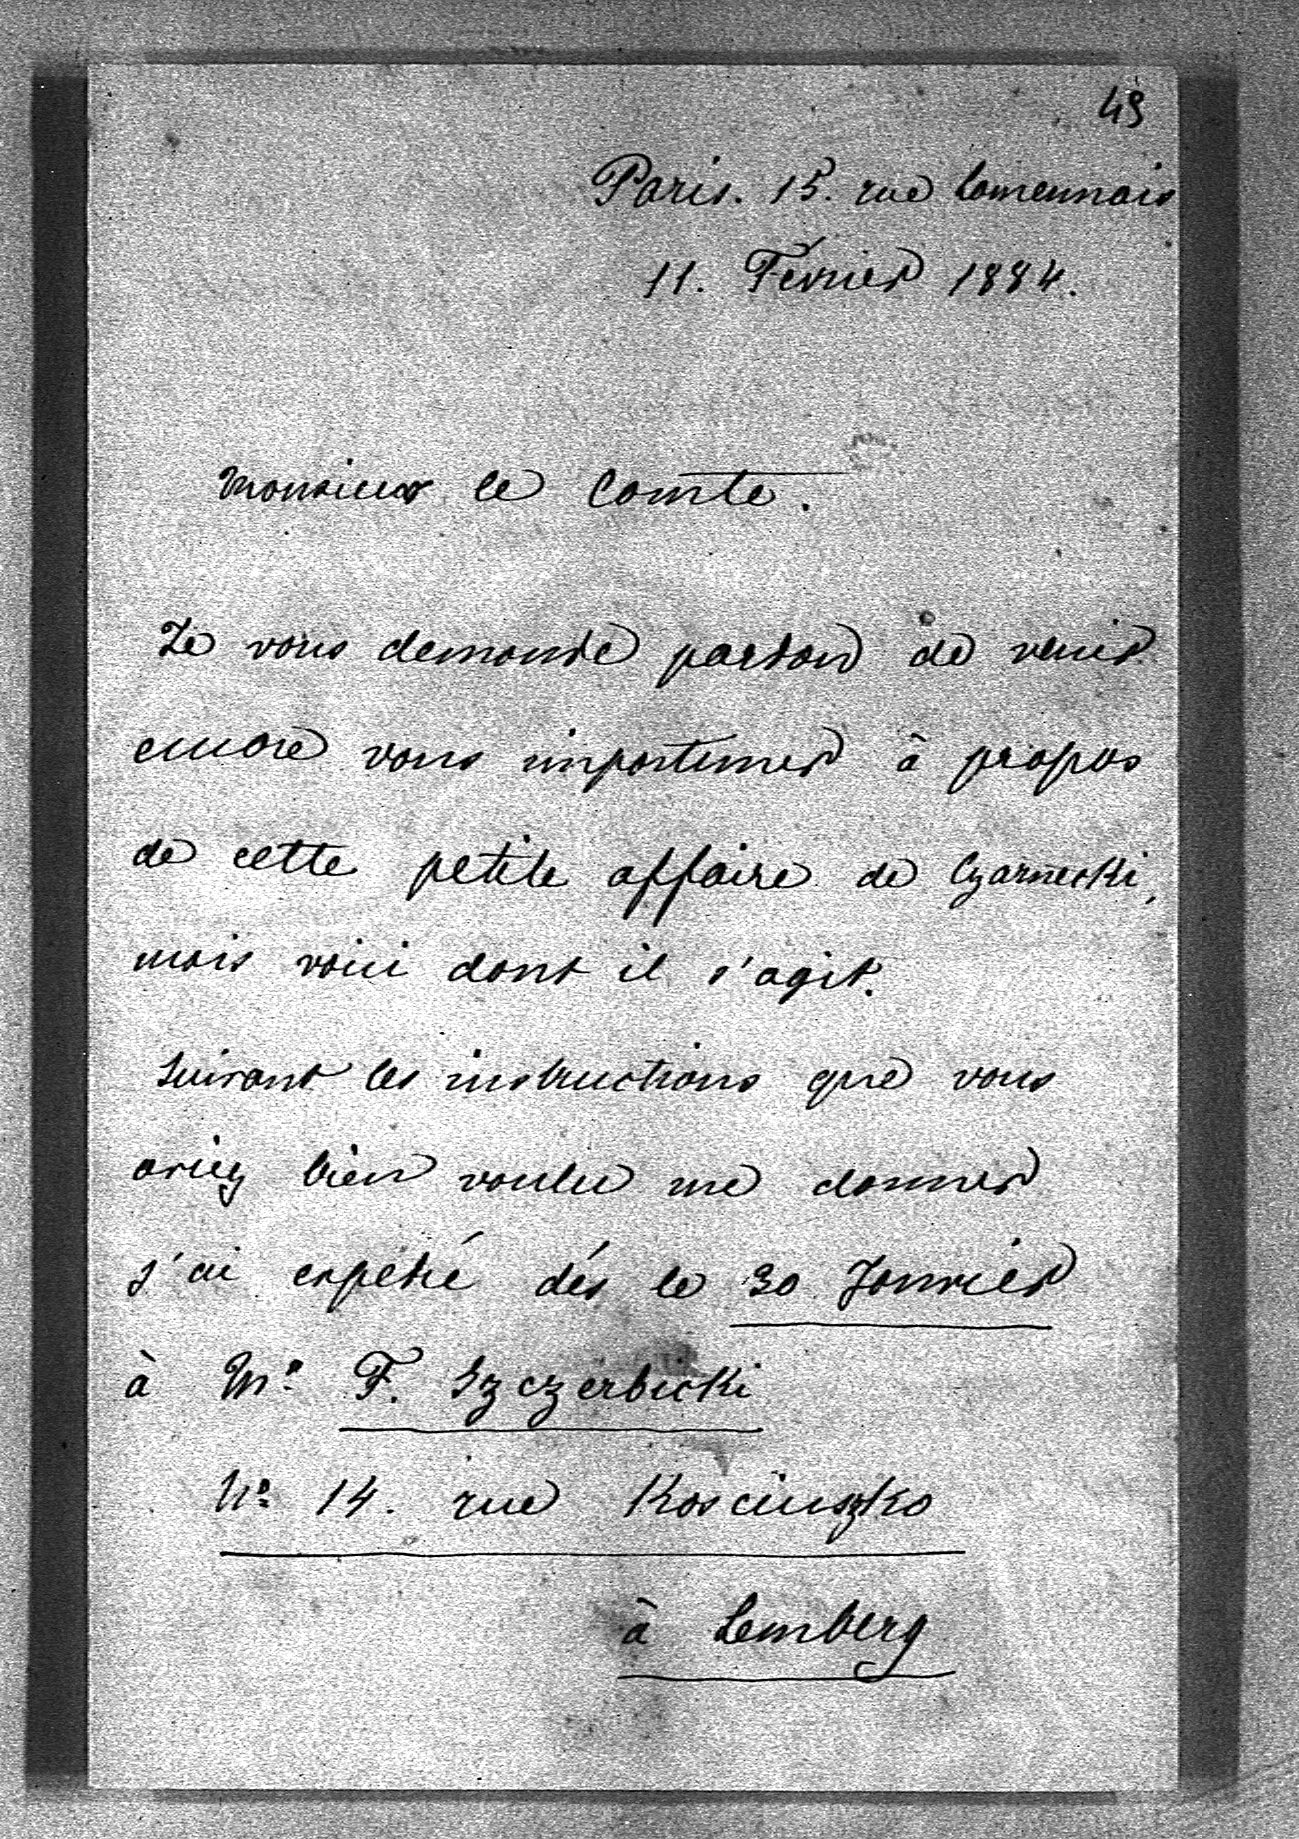 49
Paris. 15. rue Lamennais
11. Février 1884.
Monsieur le Comte.
Je vous demande pardon de venir
encore vous importuner à propos
de cette petite affaire de Czarnecki,
mais voici dont il s'agit.
Suivant les instructions que vous
aviez bien voulu me donner
j'ai expédié dés le 30 Janvier
à Mr. F. Szczerbicki
No. 14. rue Kosciuszko
à Lemberg